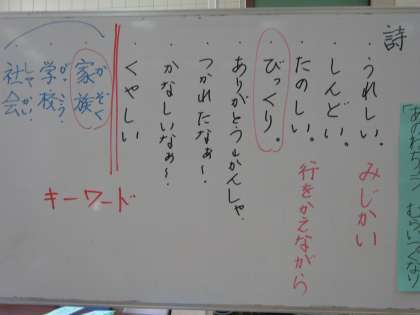 詩
・うれしい。 みじかい
・しんどい。
・たのしい。 行をかえながら
・びっくり。
・ありがとう・かんしゃ
・つかれたなぁ〜
・かなしいなぁ〜
・くやしい
キーワード
・家族 かぞく
・学校 がっこう
・社会 しゃかい